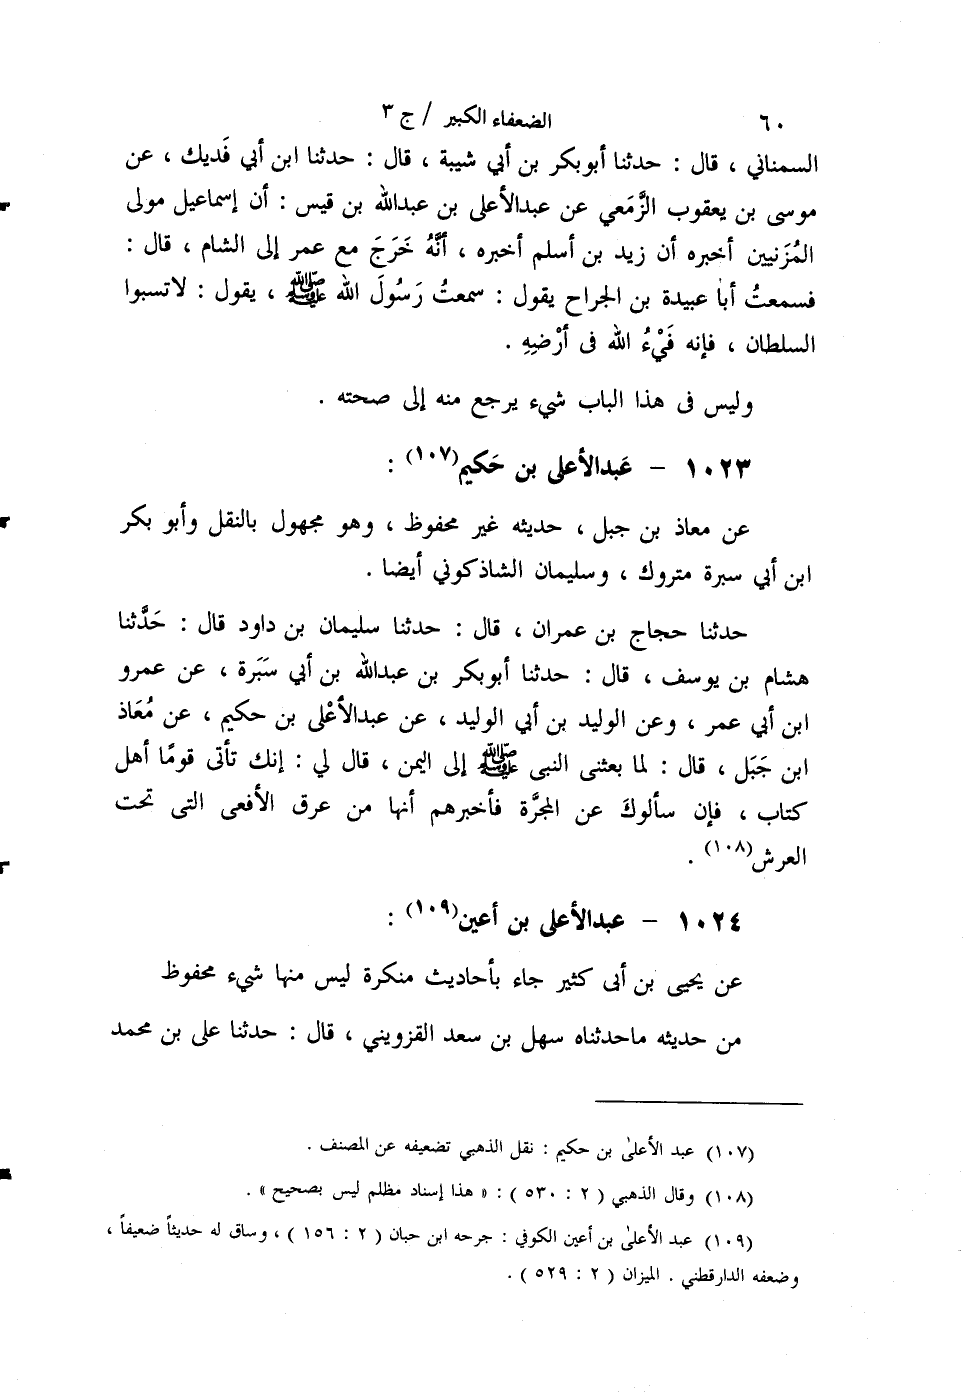 ٦٠ الضعفاء الكبير / ج ٣
السمناني ، قال : حدثنا أبوبكر بن أبي شيبة ، قال : حدثنا ابن أبي فَديك ، عن
موسى بن يعقوب الزَّمَعي عن عبدالأعلى بن عبدالله بن قيس : أن إسماعيل مولى
المُزَنيين أخبره أن زيد بن أسلم أخبره ، أنَّهُ خَرَجَ مع عمر إلى الشام ، قال :
فسمعتُ أبا عبيدة بن الجراح يقول : سمعتُ رَسُولَ الله ﷺ ، يقول : لاتسبوا
السلطان ، فإنه فَيْءُ الله فى أرْضِهِ .
وليس فى هذا الباب شيء يرجع منه إلى صحته .
١٠٢٣ – عَبدالأعلى بن حَكيم(١٠٧) :
عن معاذ بن جبل ، حديثه غير محفوظ ، وهو مجهول بالنقل وأبو بكر
ابن أبي سبرة متروك ، وسليمان الشاذكوني أيضا .
حدثنا حجاج بن عمران ، قال : حدثنا سليمان بن داود قال : حَدَّثنا
هشام بن يوسف ، قال : حدثنا أبوبكر بن عبدالله بن أبي سَبَرة ، عن عمرو
ابن أبي عمر ، وعن الوليد بن أبي الوليد ، عن عبدالأعْلى بن حكيم ، عن مُعَاذ
ابن جَبَل ، قال : لما بعثنى النبى ﷺ إلى اليمن ، قال لي : إنك تأتى قومًا أهل
كتاب ، فإن سألوكَ عن المجرَّة فأخبرهم أنها من عرق الأفعى التى تحت
العرش(١٠٨) .
١٠٢٤ – عبدالأعلى بن أعين(١٠٩) :
عن يحيى بن أبى كثير جاء بأحاديث منكرة ليس منها شيء محفوظ
من حديثه ماحدثناه سهل بن سعد القزويني ، قال : حدثنا على بن محمد
(١٠٧) عبد الأعلىٰ بن حكيم : نقل الذهبي تضعيفه عن المصنف .
(١٠٨) وقال الذهبي ( ٢ : ٥٣٠ ) : « هذا إسناد مظلم ليس بصحيح » .
(١٠٩) عبد الأعلىٰ بن أعين الكوفي : جرحه ابن حبان ( ٢ : ١٥٦ ) ، وساق له حديثاً ضعيفاً ،
وضعفه الدارقطني . الميزان ( ٢ : ٥٢٩ ) .